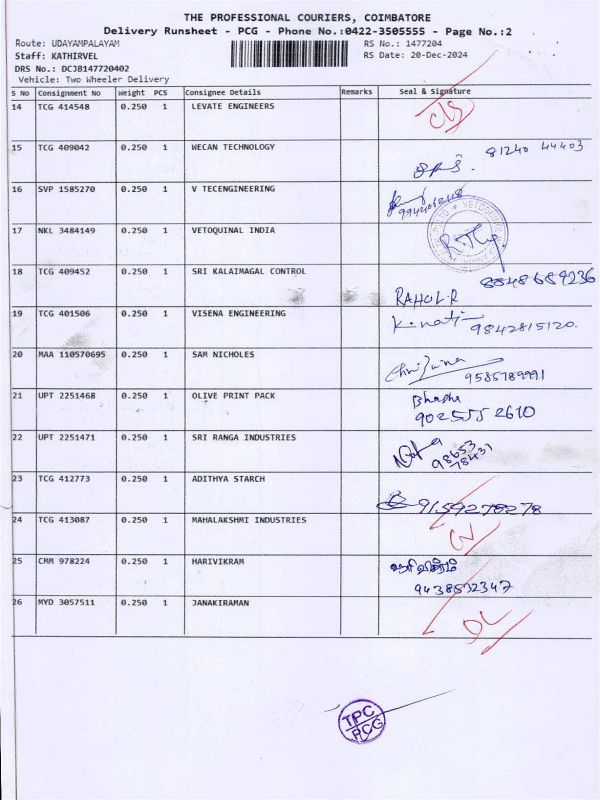 THE PROFESSIONAL COURIERS, COIMBATORE
Delivery Runsheet - PCG - Phone No.:0422-3505555 - Page No.:2
Route: UDAYAMPALAYAM RS No.: 1477204
Staff: KATHIRVEL RS Date: 20-Dec-2024
DRS No.: DCJB147720402
Vehicle: Two Wheeler Delivery
S No Consignment No Weight PCS Consignee Details Remarks Seal & Signature
14 TCG 414548 0.250 1 LEVATE ENGINEERS
15 TCG 409042 0.250 1 WECAN TECHNOLOGY 81240 44403
16 SVP 1585270 0.250 1 V TECENGINEERING
17 NKL 3484149 0.250 1 VETOQUINAL INDIA
18 TCG 409452 0.250 1 SRI KALAIMAGAL CONTROL 8848689236
RAHUL.R
19 TCG 401506 0.250 1 VISENA ENGINEERING 9842815120.
20 MAA 110570695 0.250 1 SAM NICHOLES
9585789991
21 UPT 2251468 0.250 1 OLIVE PRINT PACK Bhasha
902555 2610
22 UPT 2251471 0.250 1 SRI RANGA INDUSTRIES
98653
78431
23 TCG 412773 0.250 1 ADITHYA STARCH
9159278278
24 TCG 413087 0.250 1 MAHALAKSHMI INDUSTRIES
25 CMM 978224 0.250 1 HARIVIKRAM ஹரிவிக்ரம்
9438532347
26 MYD 3057511 0.250 1 JANAKIRAMAN
DL
TPC
PCG